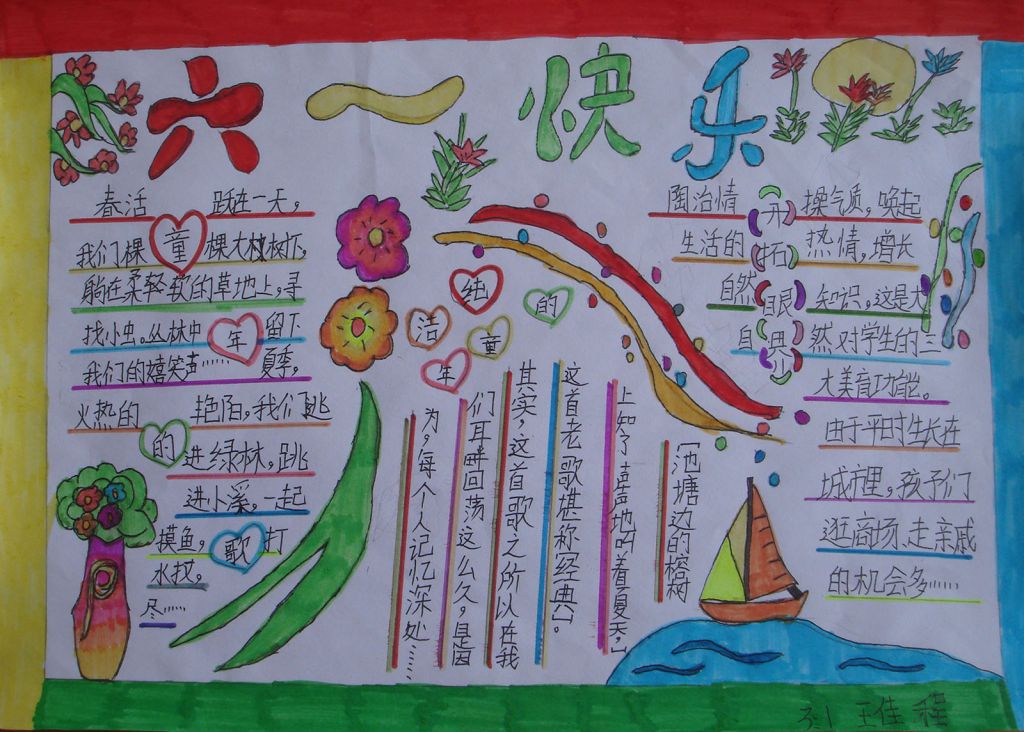 六一快乐
春活 跃在一天，
我们棵 棵大树树下，
躺在柔轻软的草地上，寻
找小虫。丛林中 留下
我们的嬉笑声…… 夏季，
火热的 艳阳，我们跳
进绿林，跳
进小溪，一起
摸鱼， 打
水技，
尽……
童
年
的
歌
纯
的
活
童
年
「池塘边的榕树
上知了声声地叫着夏天，」
这首老歌堪称经典」。
其实，这首歌之所以在我
们耳畔回荡这么久，是因
为，每个人记忆深处……
陶冶情 操气质，唤起
生活的 热情，增长
自然 知识，这是大
自 然对学生的三
大美育功能。
开
拓
眼
界
由于平时生长在
城市里，孩子们
逛商场、走亲戚
的机会多……
王佳程